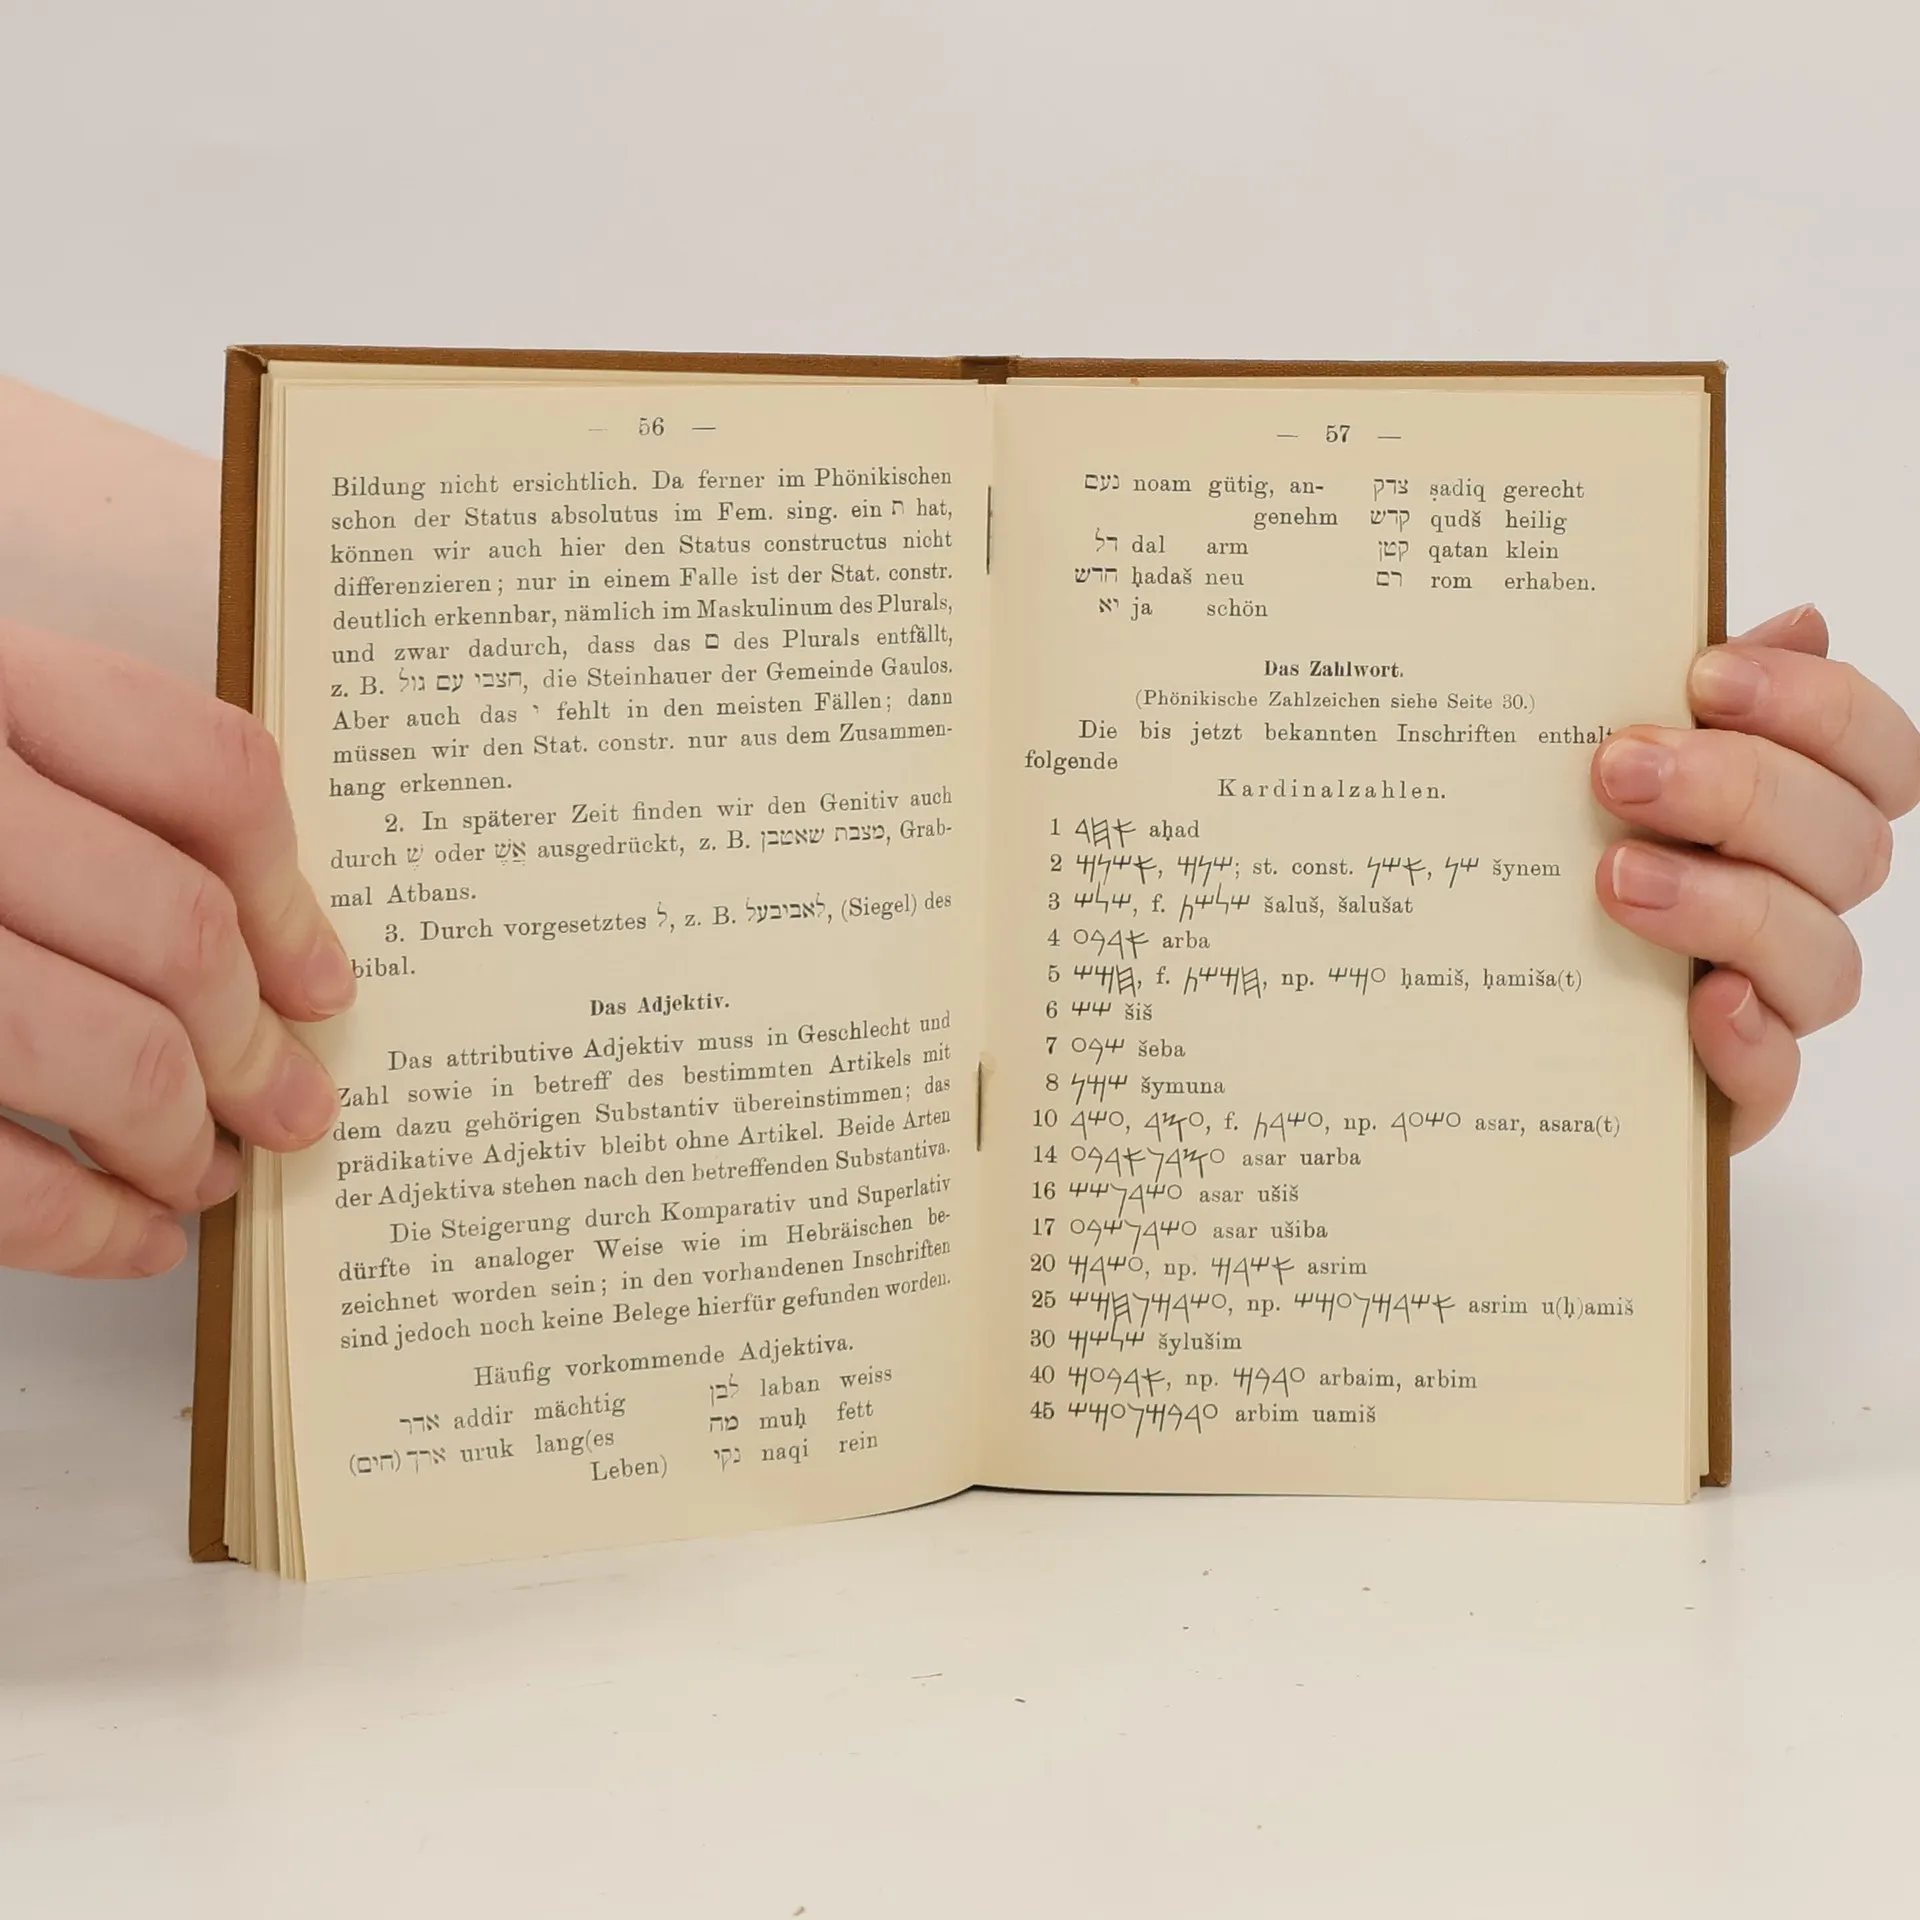 — 56 —
Bildung nicht ersichtlich. Da ferner im Phönikischen
schon der Status absolutus im Fem. sing. ein ת hat,
können wir auch hier den Status constructus nicht
differenzieren; nur in einem Falle ist der Stat. constr.
deutlich erkennbar, nämlich im Maskulinum des Plurals,
und zwar dadurch, dass das ם des Plurals entfällt,
z. B. חצבי עם גול, die Steinhauer der Gemeinde Gaulos.
Aber auch das י fehlt in den meisten Fällen; dann
müssen wir den Stat. constr. nur aus dem Zusammen-
hang erkennen.
2. In späterer Zeit finden wir den Genitiv auch
durch שֶׁ oder אֲשֶׁ ausgedrückt, z. B. מצבת שאטבן, Grab-
mal Atbans.
3. Durch vorgesetztes ל, z. B. לאביבעל, (Siegel) des
bibal.
Das Adjektiv.
Das attributive Adjektiv muss in Geschlecht und
Zahl sowie in betreff des bestimmten Artikels mit
dem dazu gehörigen Substantiv übereinstimmen; das
prädikative Adjektiv bleibt ohne Artikel. Beide Arten
der Adjektiva stehen nach den betreffenden Substantiva.
Die Steigerung durch Komparativ und Superlativ
dürfte in analoger Weise wie im Hebräischen be-
zeichnet worden sein; in den vorhandenen Inschriften
sind jedoch noch keine Belege hierfür gefunden worden.
Häufig vorkommende Adjektiva.
אדר addir mächtig לבן laban weiss
ארך (חים) uruk lang(es מח muḥ fett
Leben) נקי naqi rein
— 57 —
נעם noam gütig, an- צדק ṣadiq gerecht
genehm קדש qudš heilig
דל dal arm קטן qatan klein
חדש ḥadaš neu רם rom erhaben.
יא ja schön
Das Zahlwort.
(Phönikische Zahlzeichen siehe Seite 30.)
Die bis jetzt bekannten Inschriften enthalt
folgende
Kardinalzahlen.
1 𐤀𐤇𐤃 aḥad
2 𐤀𐤔𐤍𐤌, 𐤔𐤍𐤌; st. const. 𐤀𐤔𐤍, 𐤔𐤍 šynem
3 𐤔𐤋𐤔, f. 𐤔𐤋𐤔𐤕 šaluš, šalušat
4 𐤀𐤓𐤁𐤏 arba
5 𐤇𐤌𐤔, f. 𐤇𐤌𐤔𐤕, np. 𐤏𐤌𐤔 ḥamiš, ḥamiša(t)
6 𐤔𐤔 šiš
7 𐤔𐤁𐤏 šeba
8 𐤔𐤌𐤍 šymuna
10 𐤏𐤔𐤓, 𐤏𐤎𐤓, f. 𐤏𐤔𐤓𐤕, np. 𐤏𐤔𐤏𐤓 asar, asara(t)
14 𐤏𐤎𐤓𐤅𐤀𐤓𐤁𐤏 asar uarba
16 𐤏𐤔𐤓𐤅𐤔𐤔 asar ušiš
17 𐤏𐤔𐤓𐤅𐤔𐤁𐤏 asar ušiba
20 𐤏𐤔𐤓𐤌, np. 𐤀𐤔𐤓𐤌 asrim
25 𐤏𐤔𐤓𐤌𐤅𐤇𐤌𐤔, np. 𐤀𐤔𐤓𐤌𐤅𐤏𐤌𐤔 asrim u(ḥ)amiš
30 𐤔𐤋𐤔𐤌 šylušim
40 𐤀𐤓𐤁𐤏𐤌, np. 𐤏𐤓𐤁𐤌 arbaim, arbim
45 𐤏𐤓𐤁𐤌𐤅𐤏𐤌𐤔 arbim uamiš